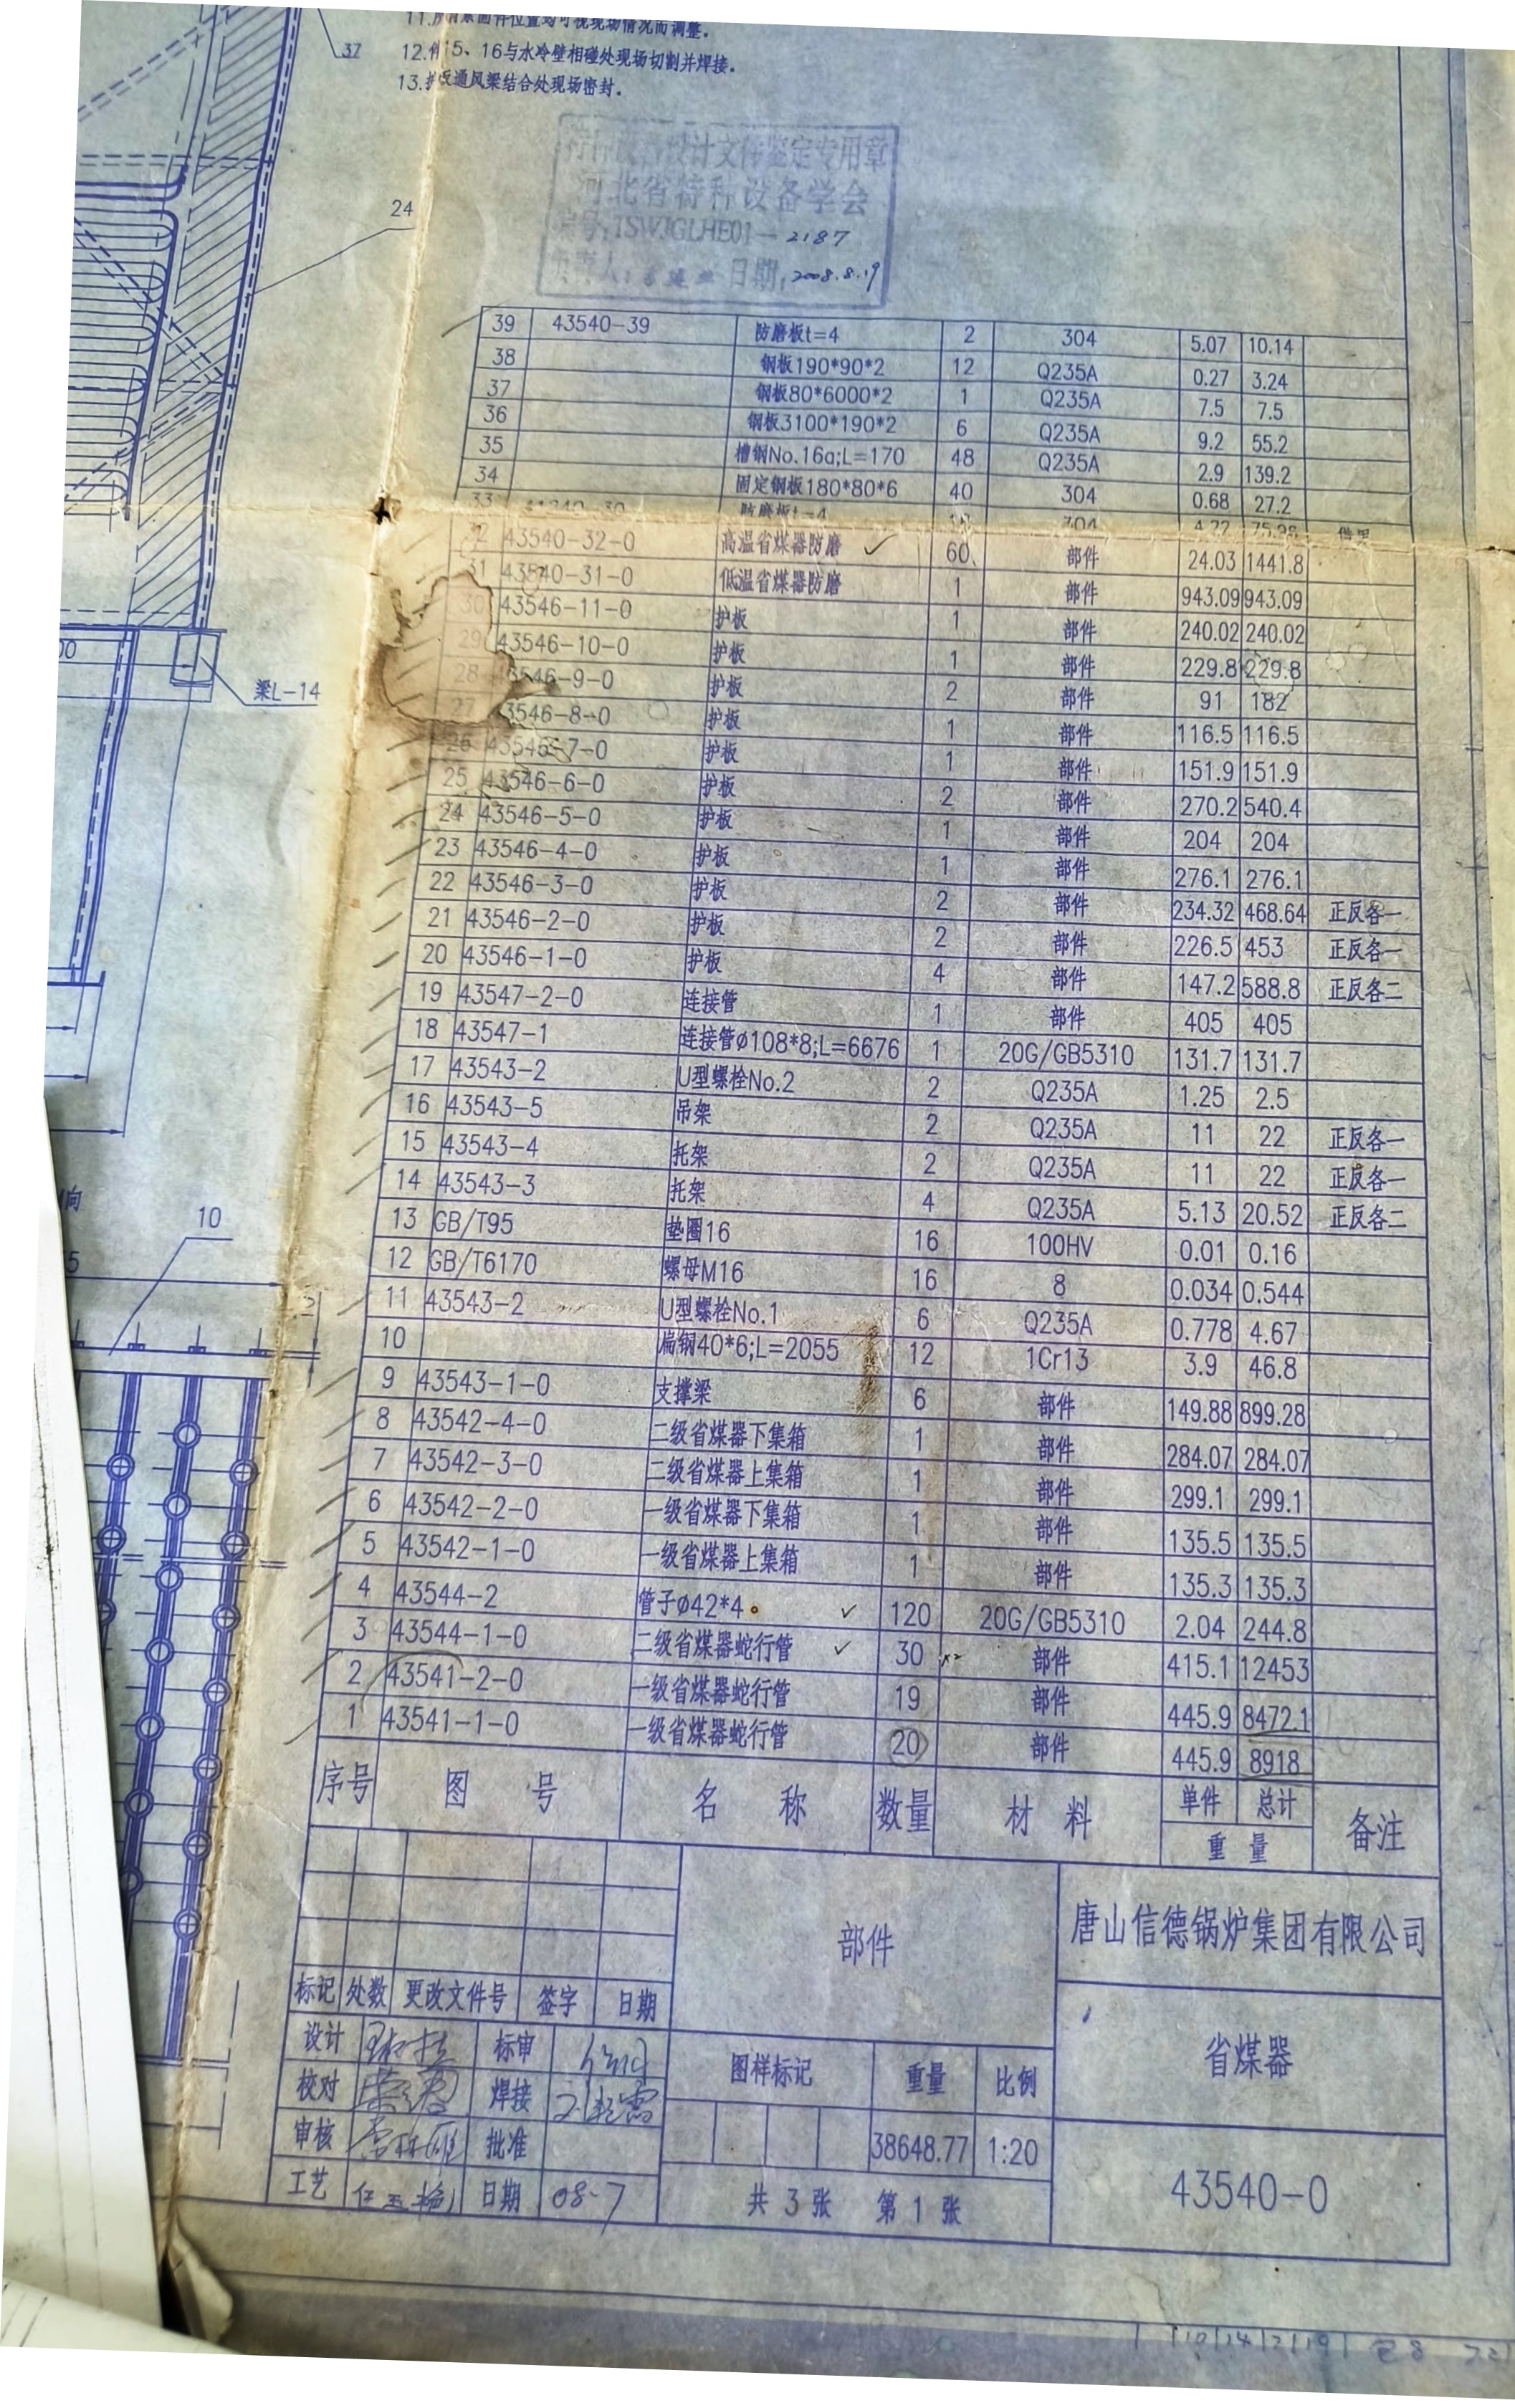 37
12.件15、16与水冷壁相碰处现场切割并焊接。
13.护板通风梁结合处现场密封。
设计文件鉴定专用章
河北省特种设备学会
编号:TSWJGLHE01-2187
日期:2008.8.19
24
39 43540-39 防磨板t=4 2 304 5.07 10.14
38 钢板190*90*2 12 Q235A 0.27 3.24
37 钢板80*6000*2 1 Q235A 7.5 7.5
36 钢板3100*190*2 6 Q235A 9.2 55.2
35 槽钢No.16a;L=170 48 Q235A 2.9 139.2
34 固定钢板180*80*6 40 304 0.68 27.2
33 防磨板t=4 304 4.22 75.96 借用
32 43540-32-0 高温省煤器防磨 60 部件 24.03 1441.8
31 43540-31-0 低温省煤器防磨 1 部件 943.09 943.09
30 43546-11-0 护板 1 部件 240.02 240.02
29 43546-10-0 护板 1 部件 229.8 229.8
28 43546-9-0 护板 2 部件 91 182
27 43546-8-0 护板 1 部件 116.5 116.5
26 43546-7-0 护板 1 部件 151.9 151.9
25 43546-6-0 护板 2 部件 270.2 540.4
24 43546-5-0 护板 1 部件 204 204
23 43546-4-0 护板 1 部件 276.1 276.1
22 43546-3-0 护板 2 部件 234.32 468.64 正反各一
21 43546-2-0 护板 2 部件 226.5 453 正反各一
20 43546-1-0 护板 4 部件 147.2 588.8 正反各二
19 43547-2-0 连接管 1 部件 405 405
18 43547-1 连接管ø108*8;L=6676 1 20G/GB5310 131.7 131.7
17 43543-2 U型螺栓No.2 2 Q235A 1.25 2.5
16 43543-5 吊架 2 Q235A 11 22 正反各一
15 43543-4 托架 2 Q235A 11 22 正反各一
14 43543-3 托架 4 Q235A 5.13 20.52 正反各二
13 GB/T95 垫圈16 16 100HV 0.01 0.16
12 GB/T6170 螺母M16 16 8 0.034 0.544
11 43543-2 U型螺栓No.1 6 Q235A 0.778 4.67
10 扁钢40*6;L=2055 12 1Cr13 3.9 46.8
9 43543-1-0 支撑梁 6 部件 149.88 899.28
8 43542-4-0 二级省煤器下集箱 1 部件 284.07 284.07
7 43542-3-0 二级省煤器上集箱 1 部件 299.1 299.1
6 43542-2-0 一级省煤器下集箱 1 部件 135.5 135.5
5 43542-1-0 一级省煤器上集箱 1 部件 135.3 135.3
4 43544-2 管子ø42*4 120 20G/GB5310 2.04 244.8
3 43544-1-0 二级省煤器蛇行管 30 部件 415.1 12453
2 43541-2-0 一级省煤器蛇行管 19 部件 445.9 8472.1
1 43541-1-0 一级省煤器蛇行管 20 部件 445.9 8918
序号 图号 名称 数量 材料 单件 总计 重量 备注
梁L-14
10
部件
唐山信德锅炉集团有限公司
标记 处数 更改文件号 签字 日期
设计 标审
校对 焊接
审核 批准
工艺 日期 08-7
图样标记 重量 比例
38648.77 1:20
共 3 张 第 1 张
省煤器
43540-0